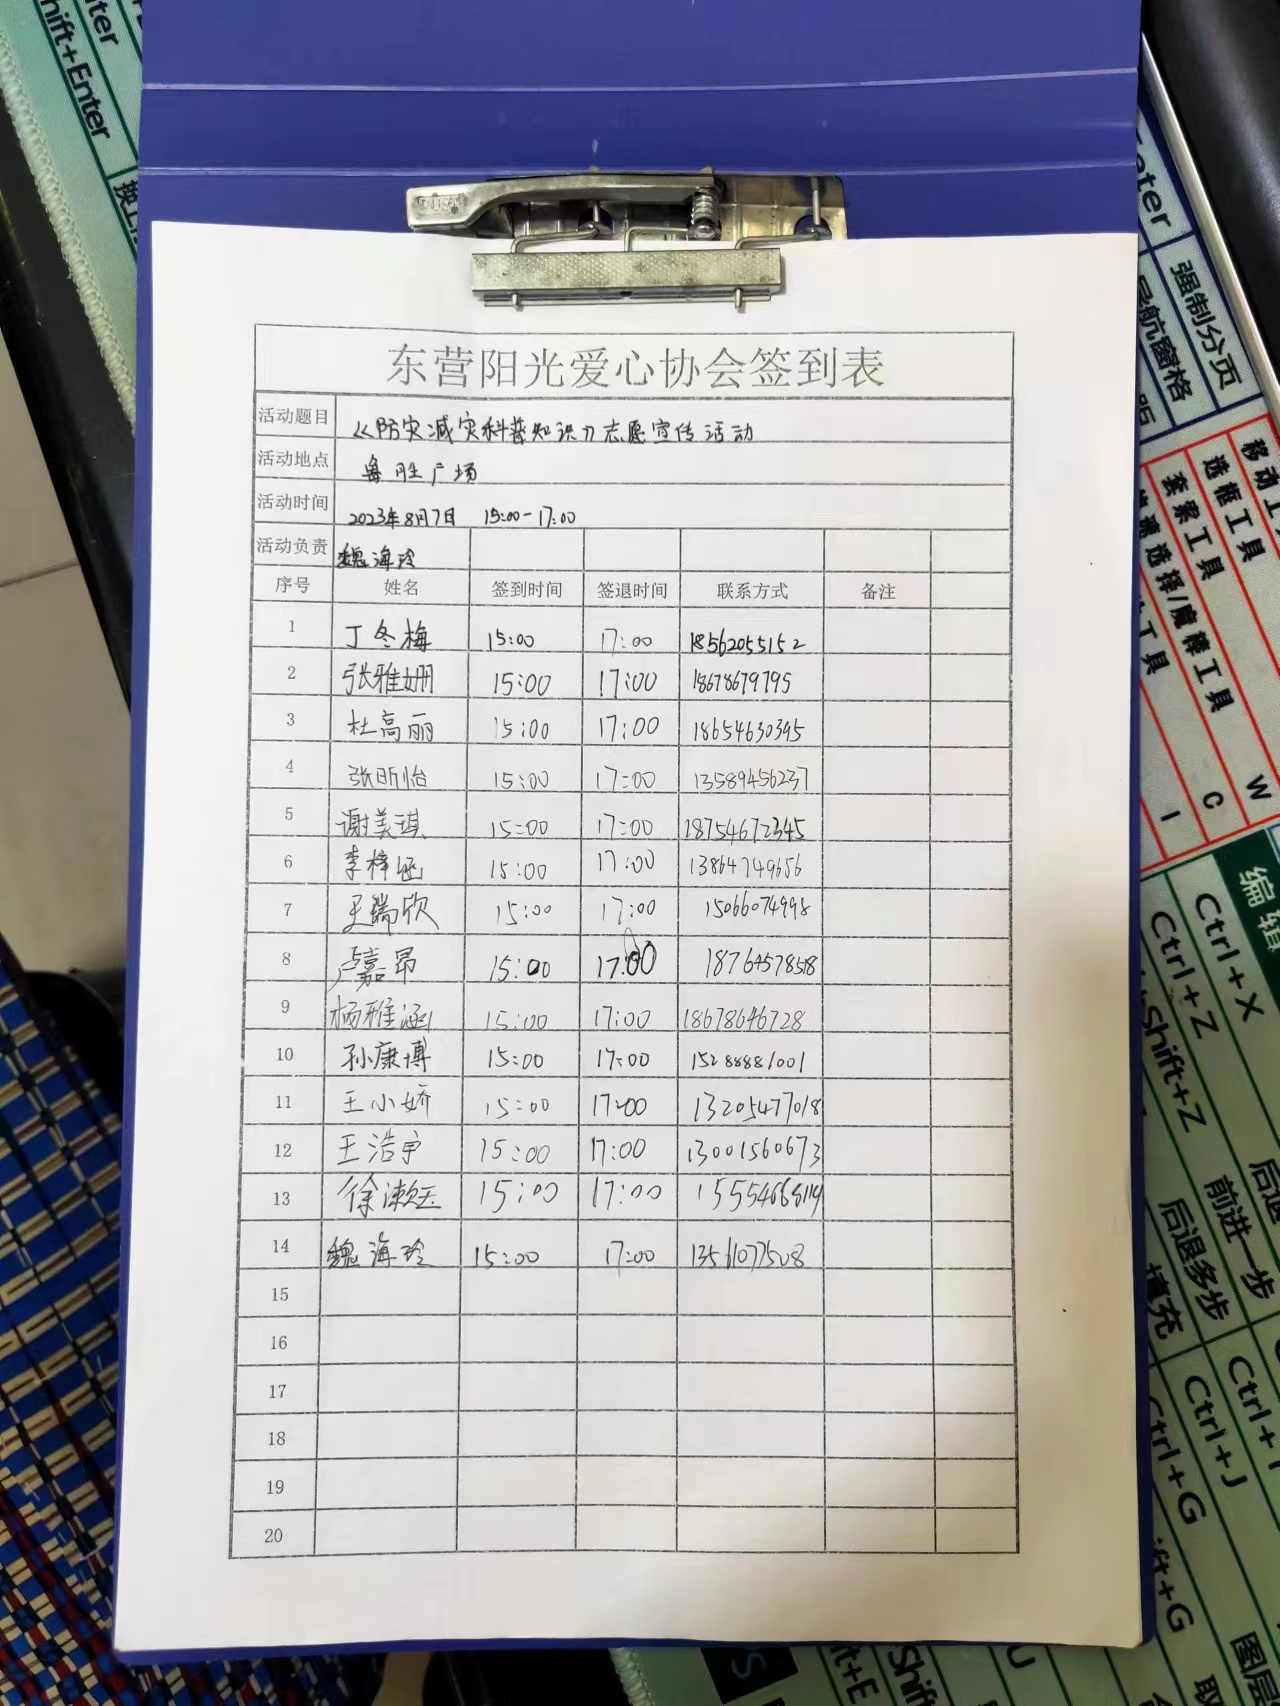 Enter
Shift+Enter
东营阳光爱心协会签到表
活动题目 《防灾减灾科普知识》志愿宣传活动
活动地点 鲁胜广场
活动时间 2023年8月7日 15:00-17:00
活动负责 魏海玲
序号 姓名 签到时间 签退时间 联系方式 备注
1 丁冬梅 15:00 17:00 18562055152
2 张雅姗 15:00 17:00 18678679795
3 杜高丽 15:00 17:00 18654630395
4 张昕怡 15:00 17:00 13589456237
5 谢美琪 15:00 17:00 18754672345
6 李梓涵 15:00 17:00 13864749656
7 王瑞欣 15:00 17:00 15066074998
8 卢嘉昂 15:00 17:00 18764578518
9 杨雅涵 15:00 17:00 18678646728
10 孙康博 15:00 17:00 15288881001
11 王小娇 15:00 17:00 13205477018
12 王浩宇 15:00 17:00 13001560673
13 徐 15:00 17:00
14 魏海玲 15:00 17:00 13561077508
15
16
17
18
19
20
强制分页
导航窗格
移动工具
选框工具
套索工具
W
C
I
编辑
Ctrl+X
Ctrl+Z
Shift+Z
前进一步
后退多步
填充
Ctrl+J
Ctrl+G